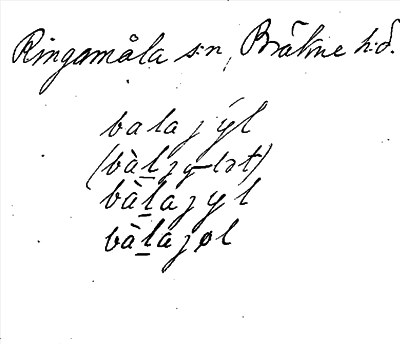 Ringamåla s:n, Bräkne h:d.
balajýl
(bàl̲jy-lət)
bàl̲ajyl
bàl̲ajøl